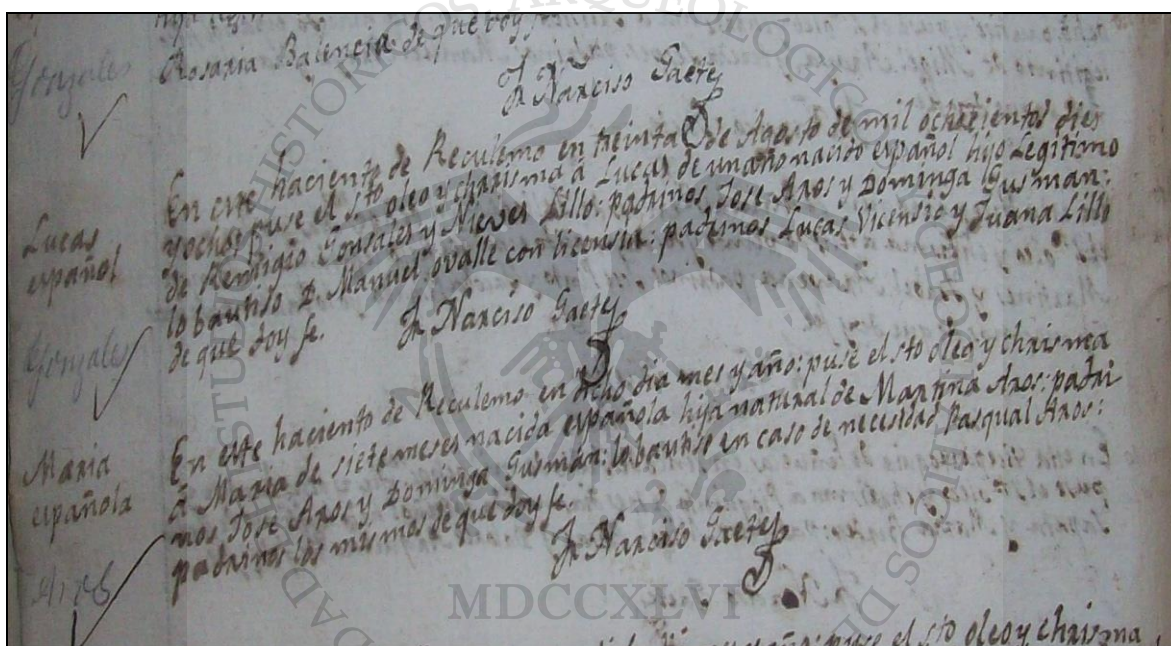 Rosaria Balencia de que doy fe
Gonzales
Fr Narciso Gaete
En este haciento de Reculemo en treinta de Agosto de mil ochosientos dies
y ocho: puse el sto oleo y charisma á Lucas de un año nacido español hijo Legitimo
Lucas
español
de Remigio Gonsales y Nieves Lillo: padrinos Jose Aros y Dominga Gusman:
lo bautiso D. Manuel ovalle con licensia: padrinos Lucas Vicensio y Juana Lillo
de que doy fe.
Fr Narciso Gaete
Gonzales
En este haciento de Reculemo en dicho dia mes y año: puse el sto oleo y chrisma
á Maria de siete meses nacida española hija natural de Martina Aros: padri
Maria
española
nos Jose Aros y Dominga Gusman: lo bautiso en caso de necesidad Pasqual Aros:
padrinos los mismos de que doy fe.
Fr Narciso Gaete
Aros
y año: puse el sto oleo y chrisma
MDCCXLVI